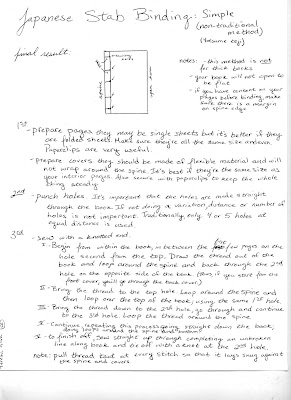 Japanese Stab Binding: Simple
(non-traditional
method)
(hatsume toji)
final result:
notes: - this method is not
for thick books
- your book will not open to
be flat
- if you have content on your
pages before binding, make
sure there is a margin
on spine edge
1st - prepare pages they may be single sheets but it's better if they
are folded sheets. Make sure they're all the same size and even.
Paperclips are very useful.
- prepare covers they should be made of flexible material and will
not wrap around the spine. It's best if they're the same size as
your interior pages. Also secure with paperclips to keep the whole
thing steady.
2nd - punch holes It's important that the holes are made straight
through the book. If not doing a variation distance or number of
holes is not important. Traditionally, only 4 or 5 holes at
equal distance is used.
3rd - sew with a knotted end.
I. Begin from within the book, in between the first few pages on the
hole second from the top. Draw the thread out of the
book and loop around the spine and back through the 2nd
hole on the opposite side of the book. (thus, if you start for the
front cover, you'll go through the back cover.)
II - Bring the thread to the top hole. Loop around the spine and
then loop over the top of the book, using the same 1st hole
III - Bring the thread down to the 2nd hole, go through and continue
to the 3rd hole. Loop the thread around the spine.
IV - Continue repeating this process going straight down the book,
doing loops around the spine and bottom
V - to finish off, sew straight up through completing an unbroken
line along book and tie off with a knot at the 2nd hole.
note: pull thread taut at every stitch so that it lays snug against
the spine and covers